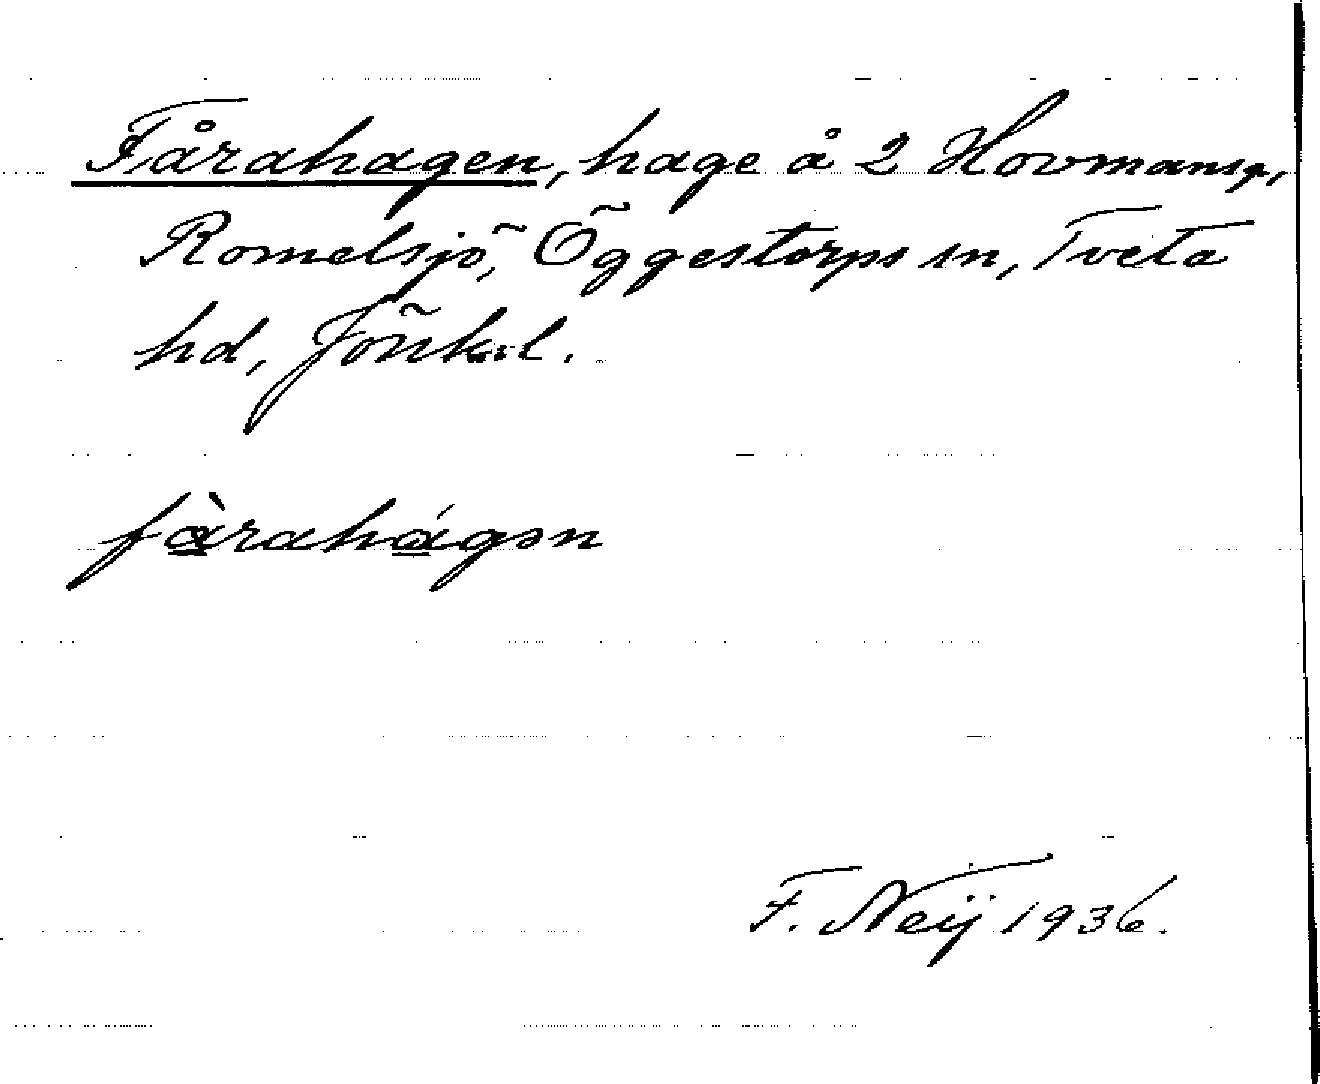 Fårahagen, hage å 2 Hovmansg,
Romelsjö, Öggestorps sn, Tveta
hd, Jönk. l.
fàrahágən
F. Neij 1936.